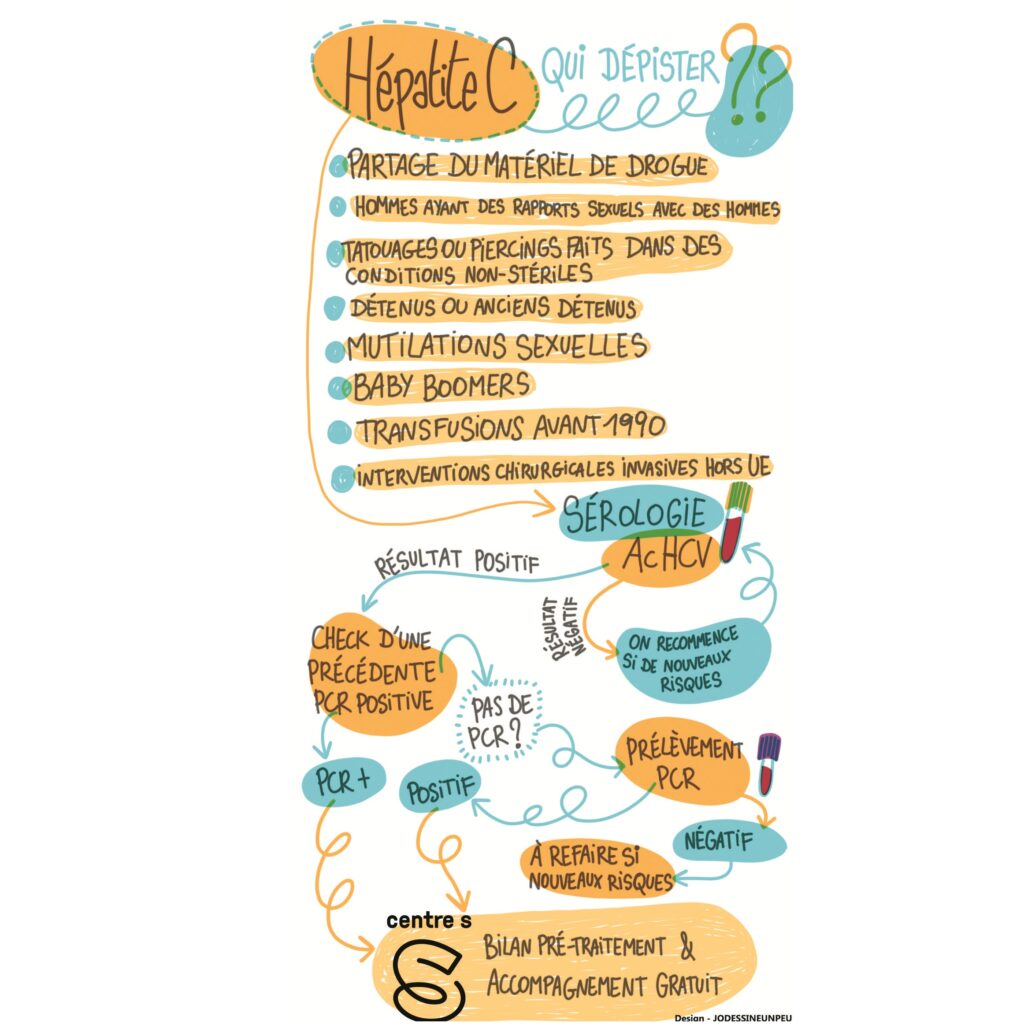 Hépatite C
QUI DÉPISTER ??
PARTAGE DU MATÉRIEL DE DROGUE
HOMMES AYANT DES RAPPORTS SEXUELS AVEC DES HOMMES
TATOUAGES OU PIERCINGS FAITS DANS DES
CONDITIONS NON-STÉRILES
DÉTENUS OU ANCIENS DÉTENUS
MUTILATIONS SEXUELLES
BABY BOOMERS
TRANSFUSIONS AVANT 1990
INTERVENTIONS CHIRURGICALES INVASIVES HORS UE
SÉROLOGIE
AC HCV
RÉSULTAT POSITIF
RÉSULTAT
NÉGATIF
ON RECOMMENCE
SI DE NOUVEAUX
RISQUES
CHECK D'UNE
PRÉCÉDENTE
PCR POSITIVE
PAS DE
PCR ?
PRÉLÈVEMENT
PCR
PCR +
POSITIF
NÉGATIF
À REFAIRE SI
NOUVEAUX RISQUES
centre s
BILAN PRÉ-TRAITEMENT &
ACCOMPAGNEMENT GRATUIT
Design - JODESSINEUNPEU